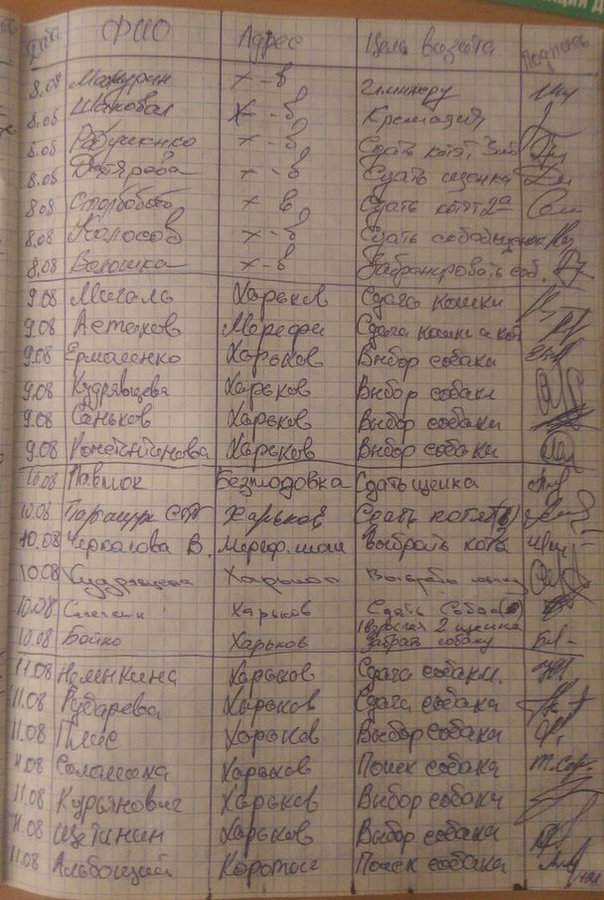 Дата ФИО Адрес Цель визита Подпись
8.08 Х-в
8.08 Шаповал Х-в Кремация
8.08 Рябушенко Х-в Сдать котят
8.08 Х-в Сдать щенка
8.08 Столбовой Х-в Сдать котят 2
8.08 Колосов Х-в Сдать
8.08 Волошка Х-в Забронировать соб.
9.08 Мигаль Харьков Сдача кошки
9.08 Астахов Мерефа Сдача кошки и кот
9.08 Ермоленко Харьков Выбор собаки
9.08 Кудрявцева Харьков Выбор собаки
9.08 Саньков Харьков Выбор собаки
9.08 Константинова Харьков Выбор собаки
10.08 Павлюк Безлюдовка Сдать щенка
10.08 Харьков Сдать котят
10.08 Черкасова В. Мереф. шос Выбрать кота
10.08 Кудрявцева Харьков
10.08 Харьков Сдать собак
1 взрослая 2 щенка
10.08 Бойко Харьков Забрать собаку
11.08 Немыкина Харьков Сдача собаки.
11.08 Губарева Харьков Сдача собаки
11.08 Плис Харьков Выбор собаки
11.08 Саламаха Харьков Поиск собаки
11.08 Курьянович Харьков Выбор собаки
11.08 Щетинин Харьков Выбор собаки
11.08 Коротыч Поиск собаки